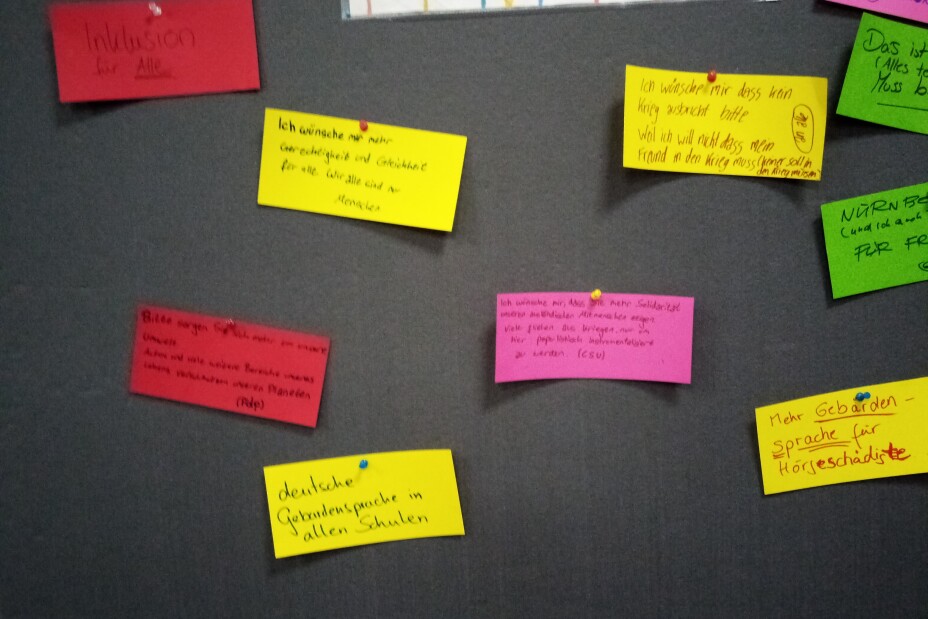 Inklusion
für Alle
Ich wünsche mir mehr
Gerechtigkeit und Gleichheit
für alle. Wir alle sind nur
Menschen
Ich wünsche mir dass kein
Krieg ausbricht bitte
Weil ich will nicht dass mein
Freund in den Krieg muss
an alle
Das ist
(Alles
Muss
NÜRNBE
(und ich auch
FÜR FR
Bitte sorgen Sie sich mehr um unsere
Umwelt
Autos und viele weitere Bereiche unseres
Lebens verschmutzen unseren Planeten
Ich wünsche mir, dass Sie mehr Solidarität
unseren ausländischen Mitmenschen zeigen
Viele fliehen aus Kriegen, nur um
hier populistisch instrumentalisiert
zu werden. (CSU)
Mehr Gebärden-
sprache für
Hörgeschädigte
deutsche
Gebärdensprache in
allen Schulen